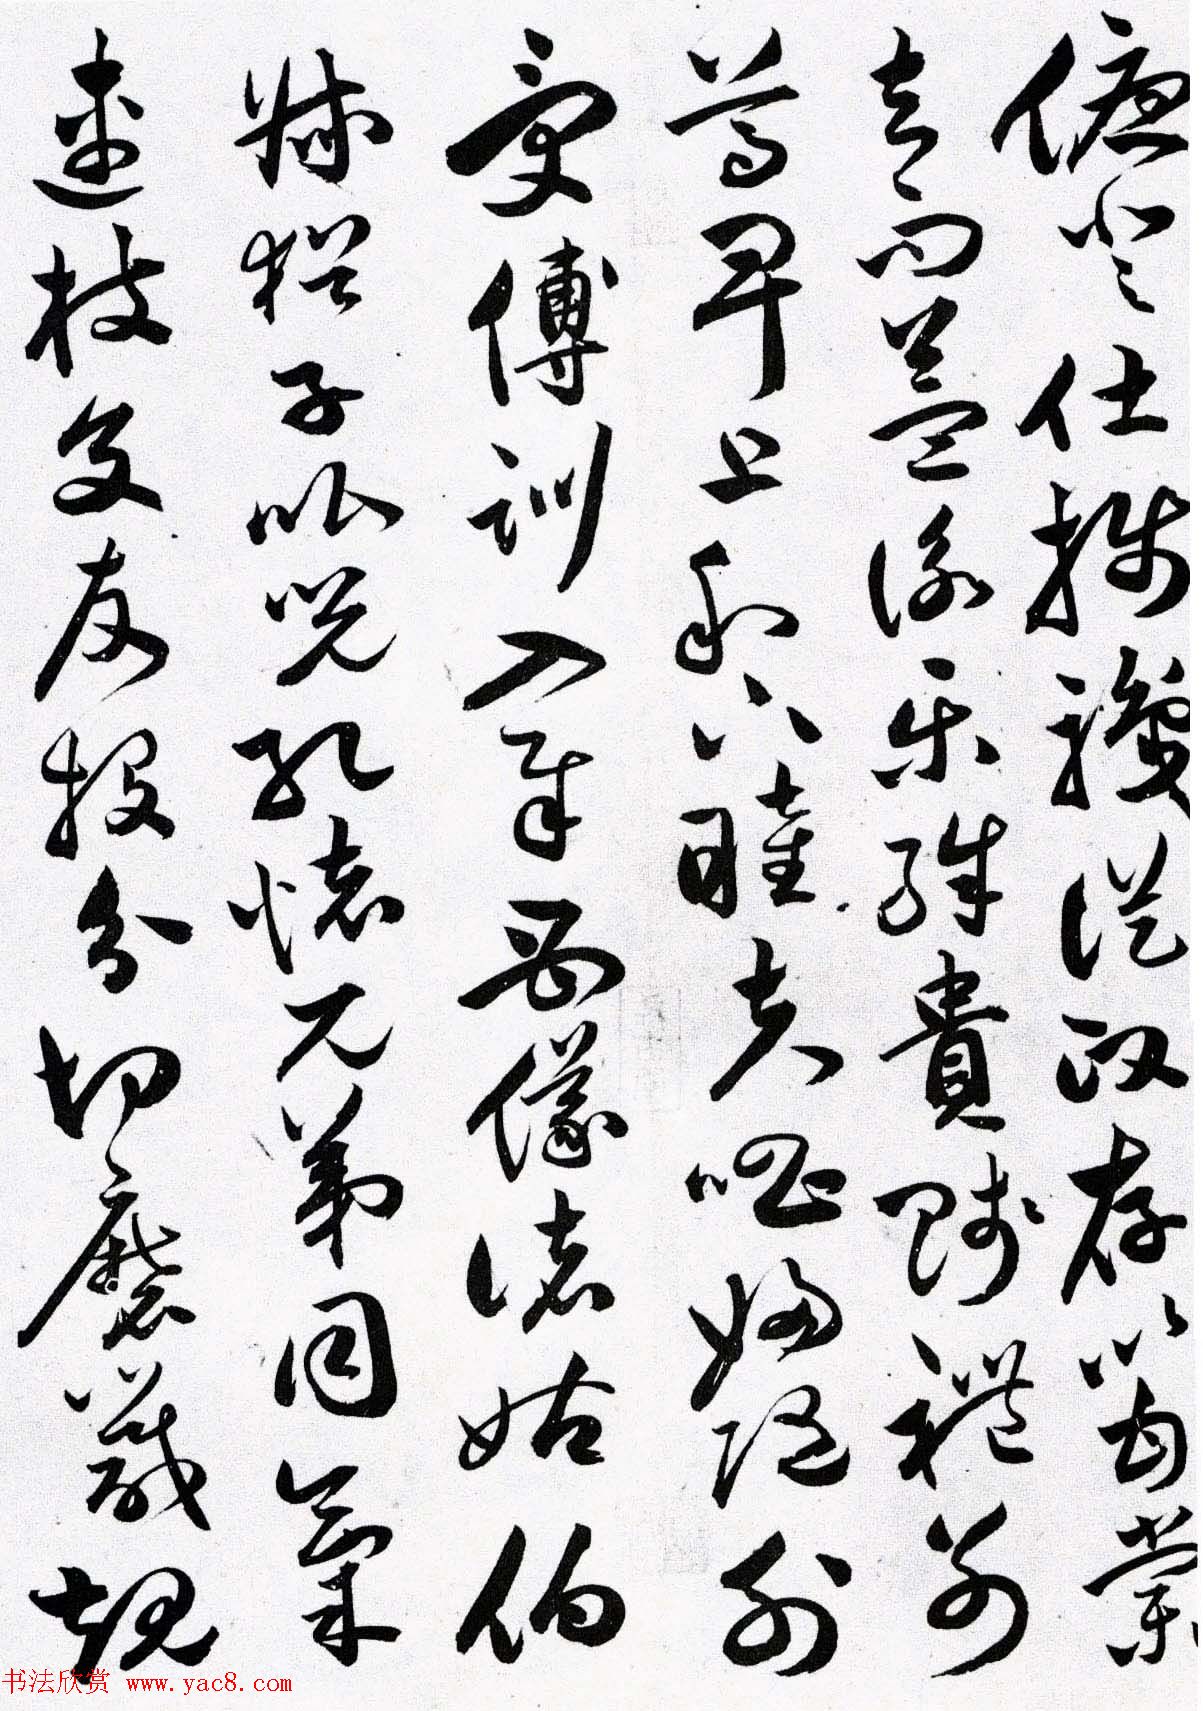 優登仕攝職從政存以甘棠
去而益詠樂殊貴賤禮別
尊卑上和下睦夫唱婦隨外
受傅訓入奉母儀諸姑伯
叔猶子比兒孔懷兄弟同氣
連枝交友投分切磨箴規
书法欣赏 www.yac8.com